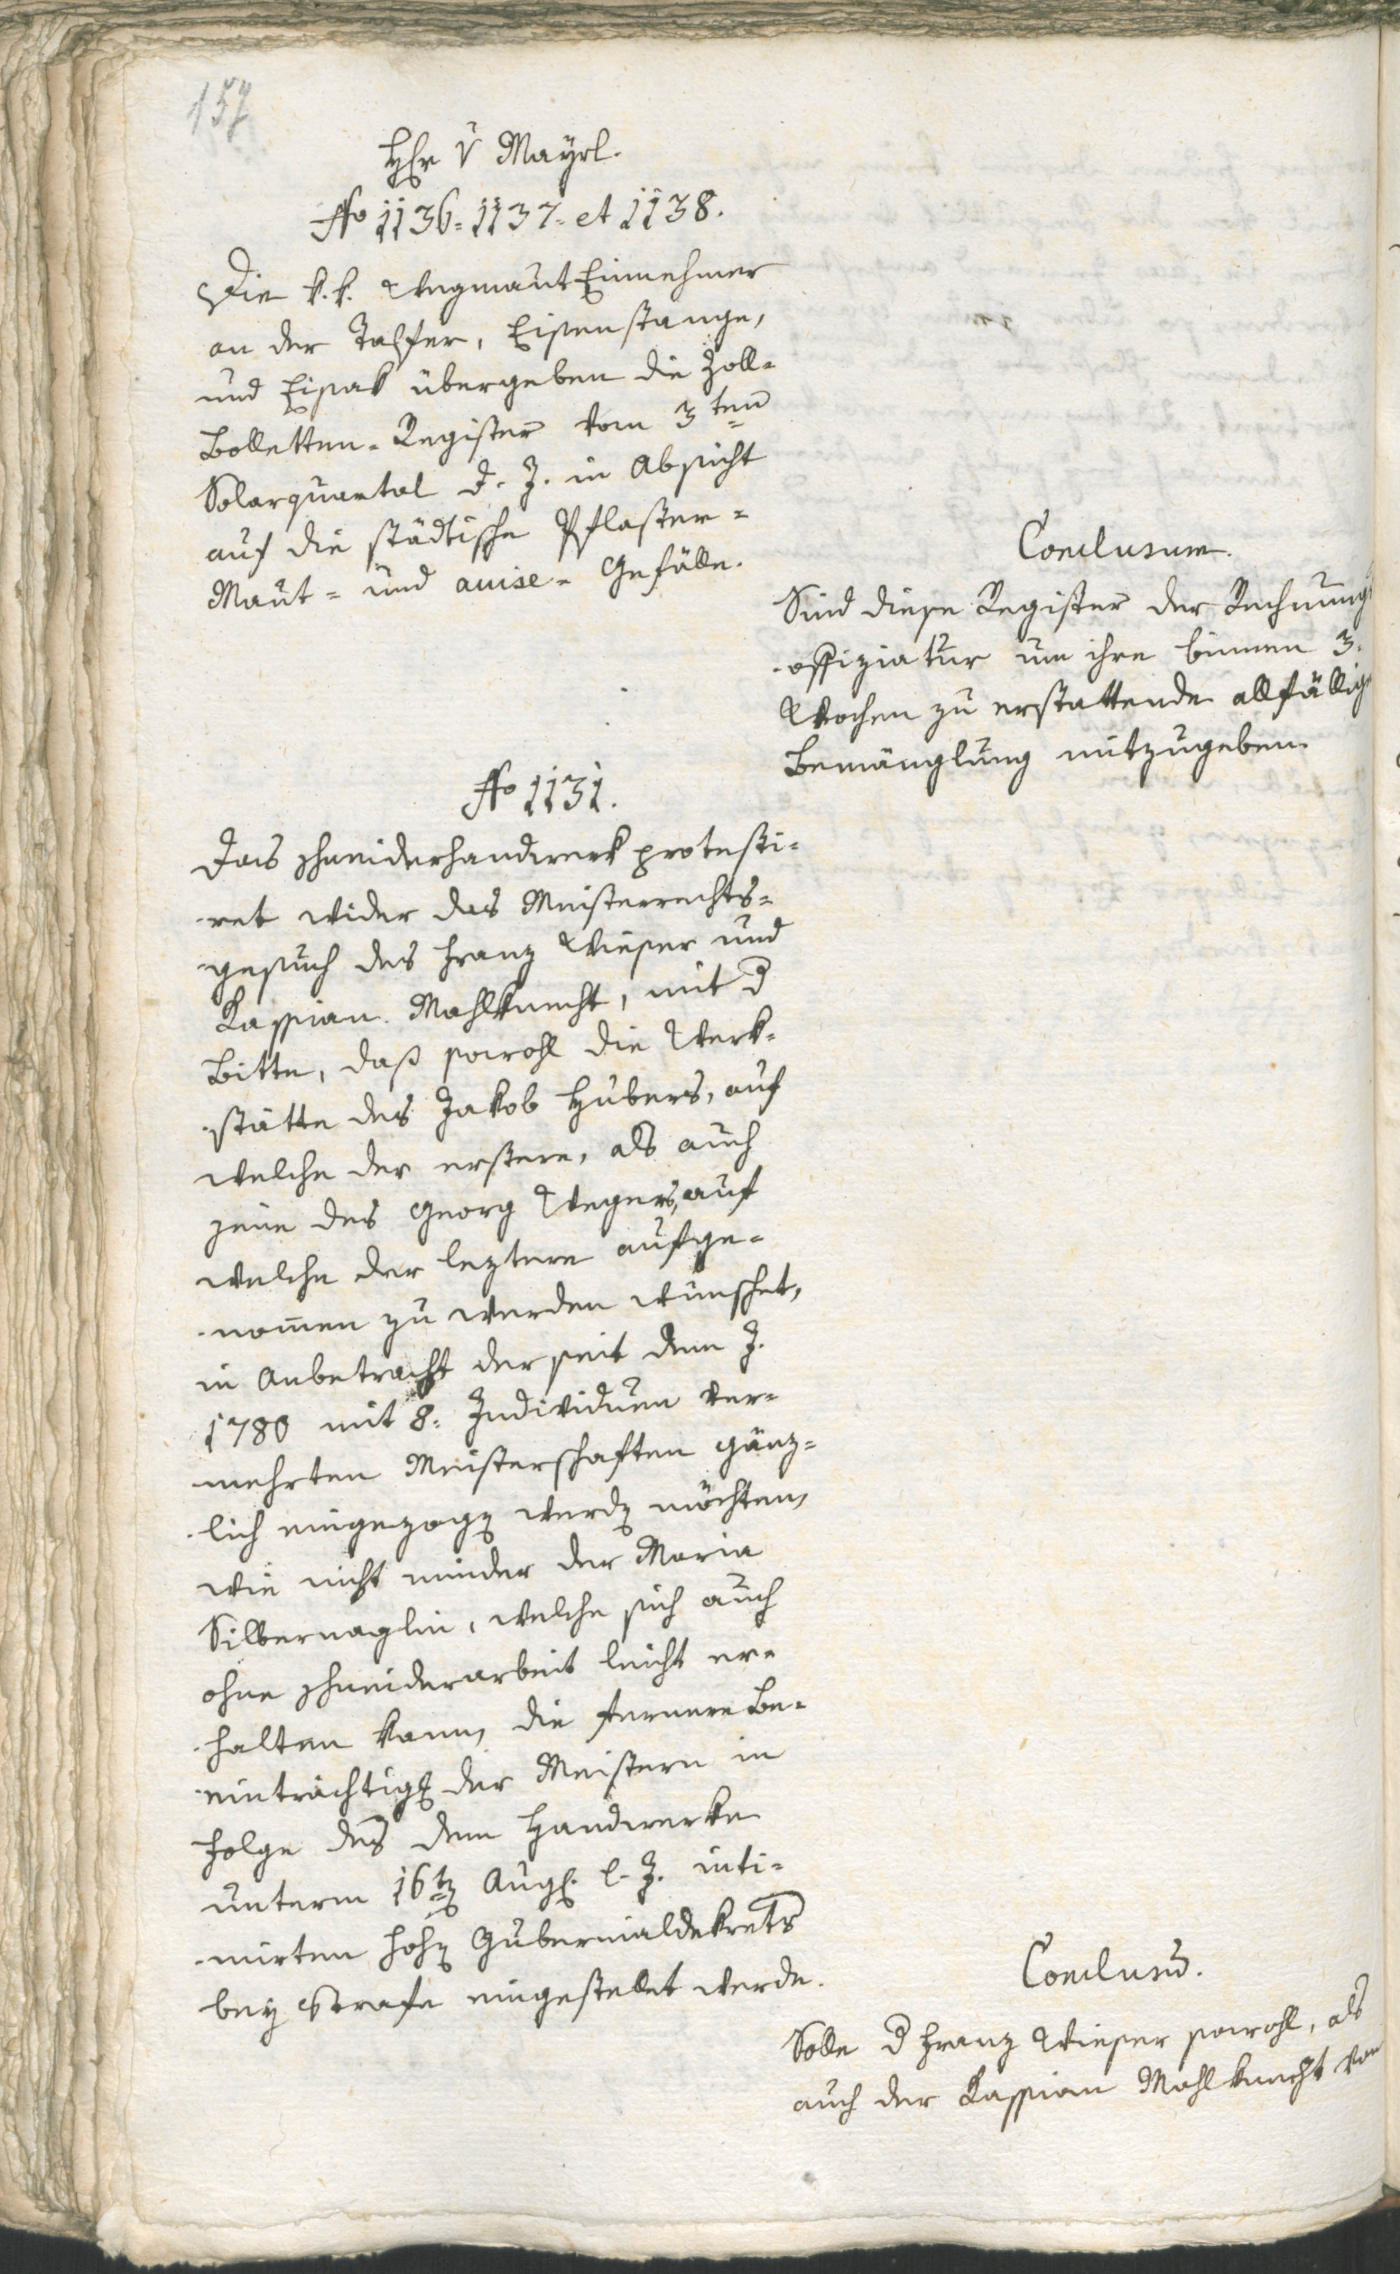 157
Hr v Mayrl.
No 1136= 1137= et 1138.
Die k. k. WegmautEinnehmer
an der Talfer, Eisenstange,
und Eisak übergeben die Zoll=
Bolletten=Register vom 3ten
Solarquartal d. J. in Absicht
auf die städtische Pflaster=
Maut= und avise=Gefälle.
Conclusum.
Sind diese Register der Rechnungs
offiziatur um ihre binnen 3.
Wochen zu erstattende allfällige
Bemänglung mitzugeben.
No 1131.
Das Schneiderhandwerk protesti=
ret wider das Meisterrechts=
gesuch des Franz Wieser und
Kassian Mahlknecht, mit d
Bitte, daß sowohl die Werk=
stätte des Jakob Hubers, auf
welche der erstere, als auch
jene des Georg Wegers, auf
welche der leztere aufge=
nom̄en zu werden wünschet,
in Anbetracht der seit dem J.
1780 mit 8. Individuen ver=
mehrten Meisterschaften gänz=
lich eingezogen werden möchten,
wie nicht minder der Maria
Silbernaglin, welche sich auch
ohne Schneiderarbeit leicht er=
halten kann, die fernere Be=
einträchtigg der Meistern in
Folge des dem Handwerke
unterm 16ten Aug. l. J. inti=
mirten hohen Gubernialdekrets
bey Strafe eingestellet werde.
Conclusū.
Solle d Franz Wieser sowohl, als
auch der Kassian Mahlknecht von